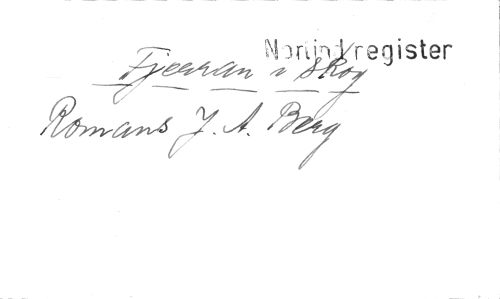 Norlind/register
Fjerran i skog
Romans J. A. Berg